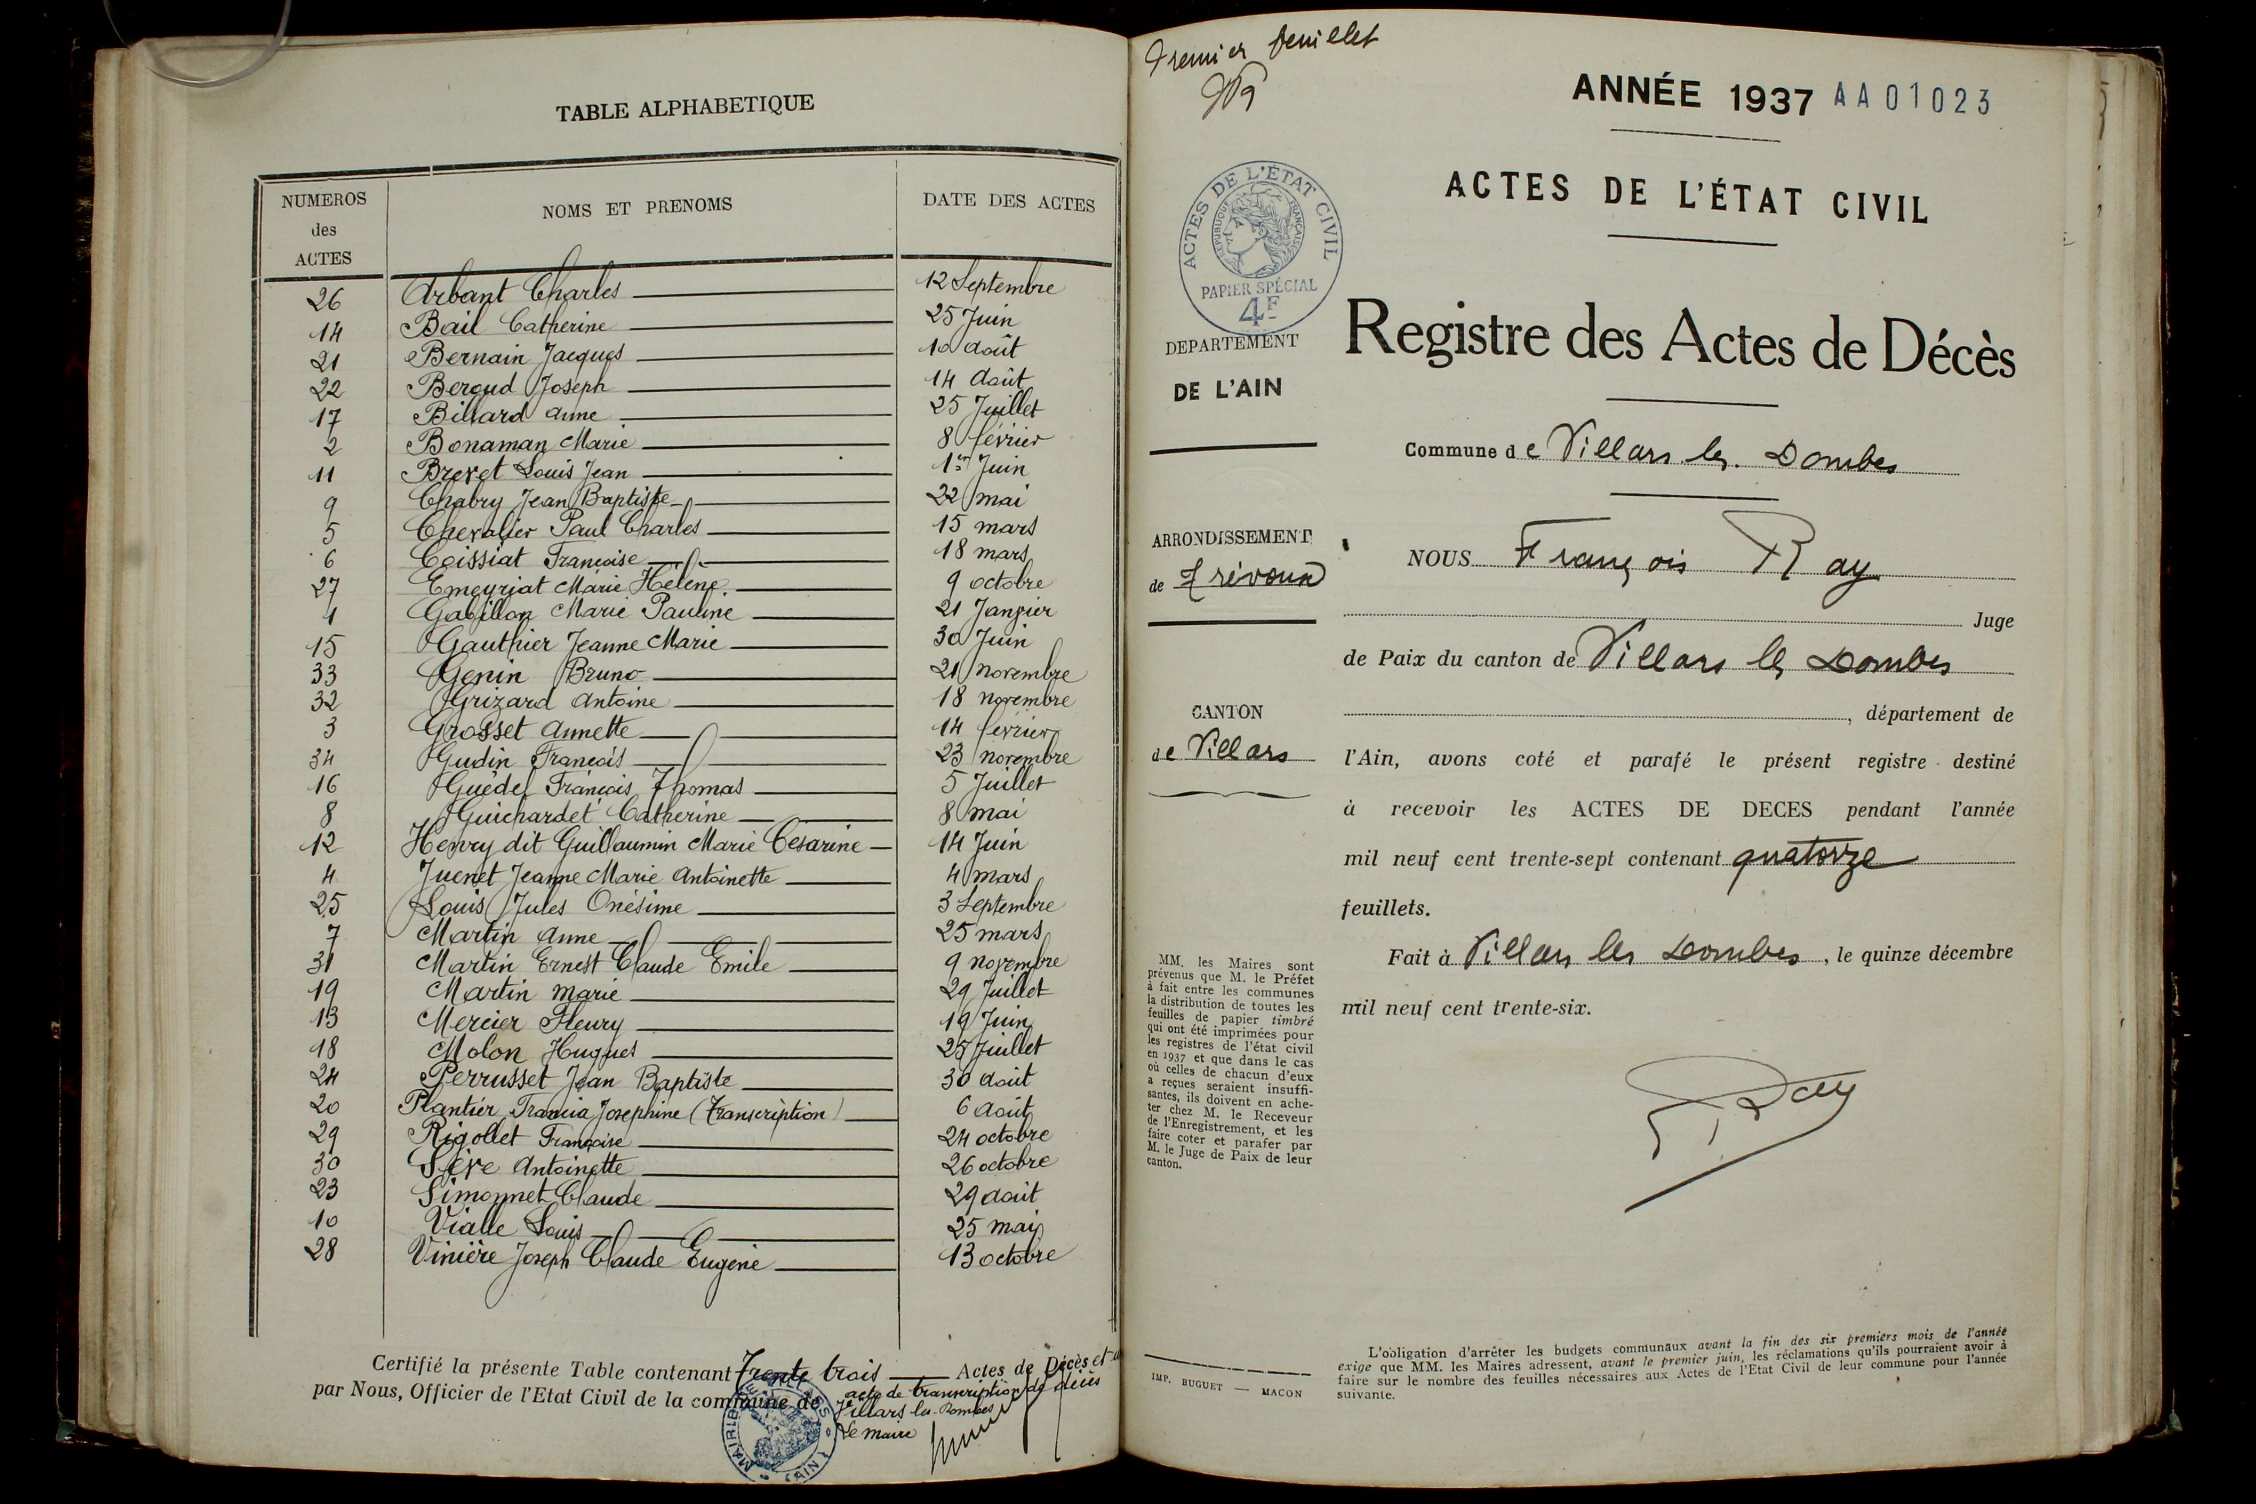 TABLE ALPHABETIQUE
NUMEROS des ACTES
NOMS ET PRENOMS
DATE DES ACTES
26 Arbant Charles 12 Septembre
14 Bail Catherine 25 Juin
21 Bernain Jacques 10 août
22 Beroud Joseph 14 août
17 Billard anne 25 Juillet
2 Bonaman Marie 8 février
11 Brevet Louis Jean 1er Juin
9 Chabry Jean Baptiste 22 mai
5 Chevalier Paul Charles 15 mars
6 Coissiat Françoise 18 mars
27 Emeyriat Marie Hélène 9 octobre
1 Gabillon Marie Pauline 21 Janvier
15 Gauthier Jeanne Marie 30 Juin
33 Genin Bruno 21 novembre
32 Grizard Antoine 18 novembre
3 Grosset Annette 14 février
34 Gudin François 23 novembre
16 Guédel François Thomas 5 Juillet
8 Guichardet Catherine 8 mai
12 Henry dit Guillaumin Marie Césarine 14 Juin
4 Juenet Jeanne Marie Antoinette 4 mars
25 Louis Jules Onésime 3 Septembre
7 Martin Anne 25 mars
31 Martin Ernest Claude Emile 9 novembre
19 Martin Marie 29 Juillet
13 Mercier Fleury 19 Juin
18 Molon Hugues 25 Juillet
24 Perrusset Jean Baptiste 30 août
20 Plantier Francia Josephine (Transcription) 6 août
29 Rigollet Françoise 24 octobre
30 Sève Antoinette 26 octobre
23 Simonnet Claude 29 août
10 Vialle Louis 25 mai
28 Vinière Joseph Claude Eugène 13 octobre
Certifié la présente Table contenant Trente trois Actes de Décès et un
acte de transcription de décès
par Nous, Officier de l'Etat Civil de la commune de Villars les Dombes
Le Maire
MAIRIE DE VILLARS (AIN)
Premier feuillet
ANNÉE 1937 AA01023
ACTES DE L'ÉTAT CIVIL
ACTES DE L'ÉTAT CIVIL
REPUBLIQUE FRANÇAISE
PAPIER SPÉCIAL
4F
DEPARTEMENT
DE L'AIN
Registre des Actes de Décès
Commune de Villars les Dombes
ARRONDISSEMENT
de Trévoux
NOUS François Ray
Juge
de Paix du canton de Villars les Dombes
, département de
CANTON
de Villars
l'Ain, avons coté et parafé le présent registre destiné
à recevoir les ACTES DE DECES pendant l'année
mil neuf cent trente-sept contenant quatorze
feuillets.
Fait à Villars les Dombes, le quinze décembre
mil neuf cent trente-six.
Ray
MM. les Maires sont
prévenus que M. le Préfet
à fait entre les communes
la distribution de toutes les
feuilles de papier timbré
qui ont été imprimées pour
les registres de l'état civil
en 1937 et que dans le cas
où celles de chacun d'eux
a reçues seraient insuffi-
santes, ils doivent en ache-
ter chez M. le Receveur
de l'Enregistrement, et les
faire coter et parafer par
M. le Juge de Paix de leur
canton.
IMP. BUGUET — MACON
L'obligation d'arrêter les budgets communaux avant la fin des six premiers mois de l'année
exige que MM. les Maires adressent, avant le premier juin, les réclamations qu'ils pourraient avoir à
faire sur le nombre des feuilles nécessaires aux Actes de l'Etat Civil de leur commune pour l'année
suivante.